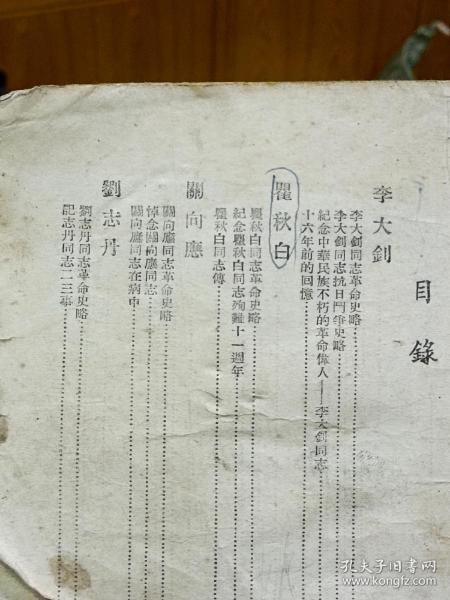 目錄
李大釗
李大釗同志革命史略
李大釗同志抗日鬥爭史略
紀念中華民族不朽的革命偉人——李大釗同志
十六年前的回憶
瞿秋白
瞿秋白同志革命史略
紀念瞿秋白同志殉難十一週年
瞿秋白同志傳
關向應
關向應同志革命史略
悼念關向應同志
關向應同志在病中
劉志丹
劉志丹同志革命史略
記志丹同志二三事
孔夫子旧书网
www.kongfz.com